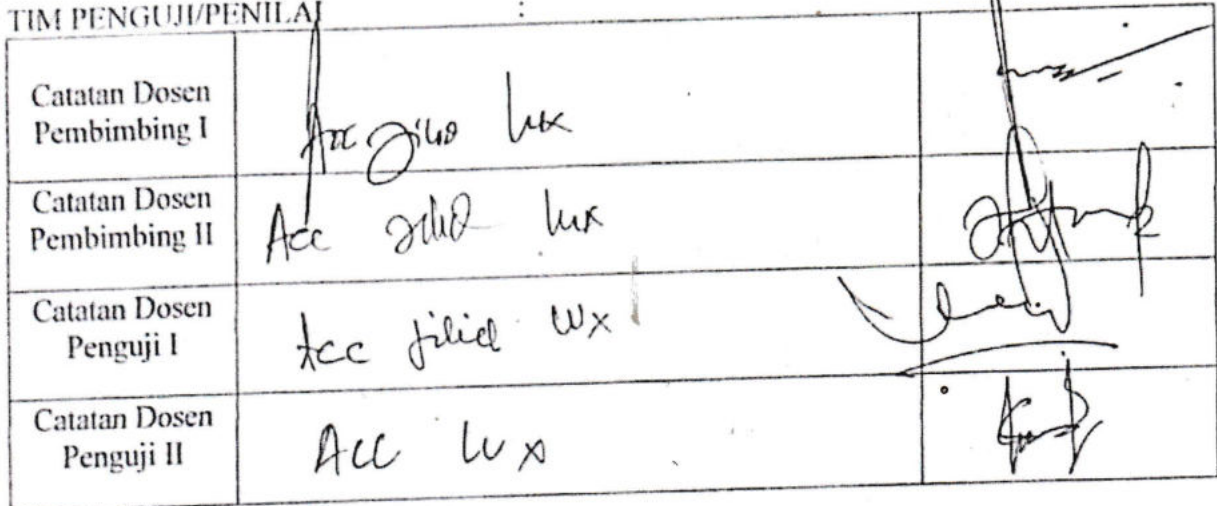 TIM PENGUJI/PENILAI :
Catatan Dosen
Pembimbing I
Acc jilid lux
Catatan Dosen
Pembimbing II
Acc jilid lux
Catatan Dosen
Penguji I
Acc jilid lux
Catatan Dosen
Penguji II
Acc lux